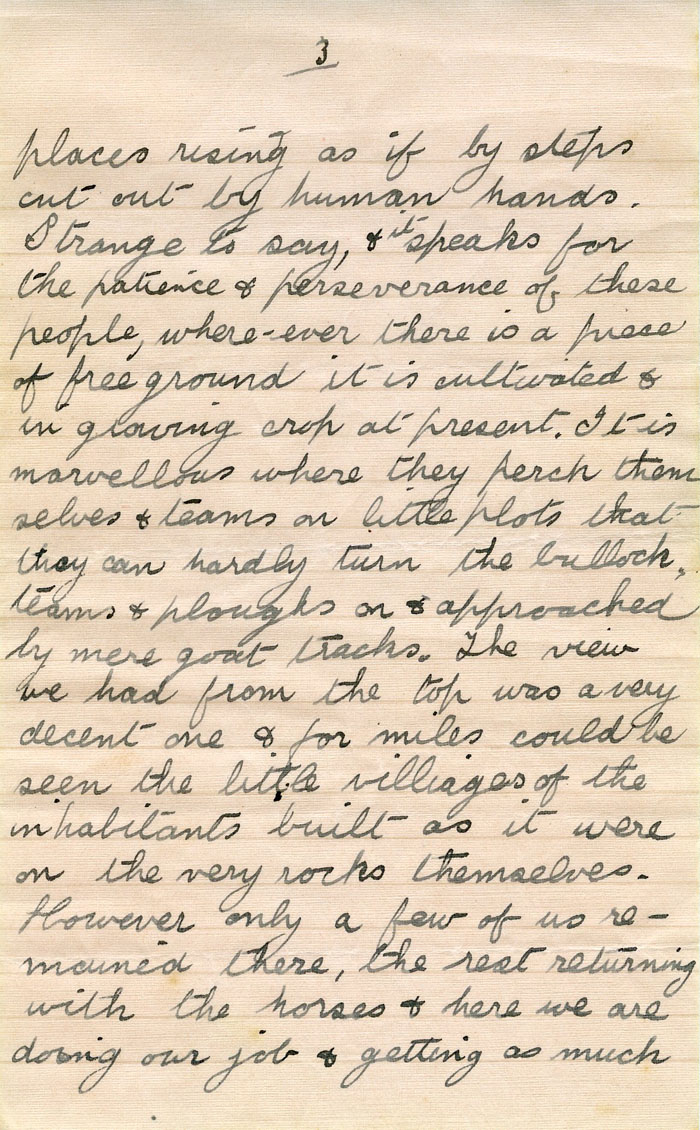 3
places rising as if by steps
cut out by human hands.
Strange to say, & it speaks for
the patience & perseverance of these
people, where-ever there is a piece
of free ground it is cultivated &
in growing crop at present. It is
marvellous where they perch them
selves & teams on little plots that
they can hardly turn the bullock,
teams & ploughs on & approached
by mere goat tracks. The view
we had from the top was a very
decent one & for miles could be
seen the little villiages of the
inhabitants built as it were
on the very rocks themselves.
However only a few of us re-
mained there, the rest returning
with the horses & here we are
doing our job & getting as much